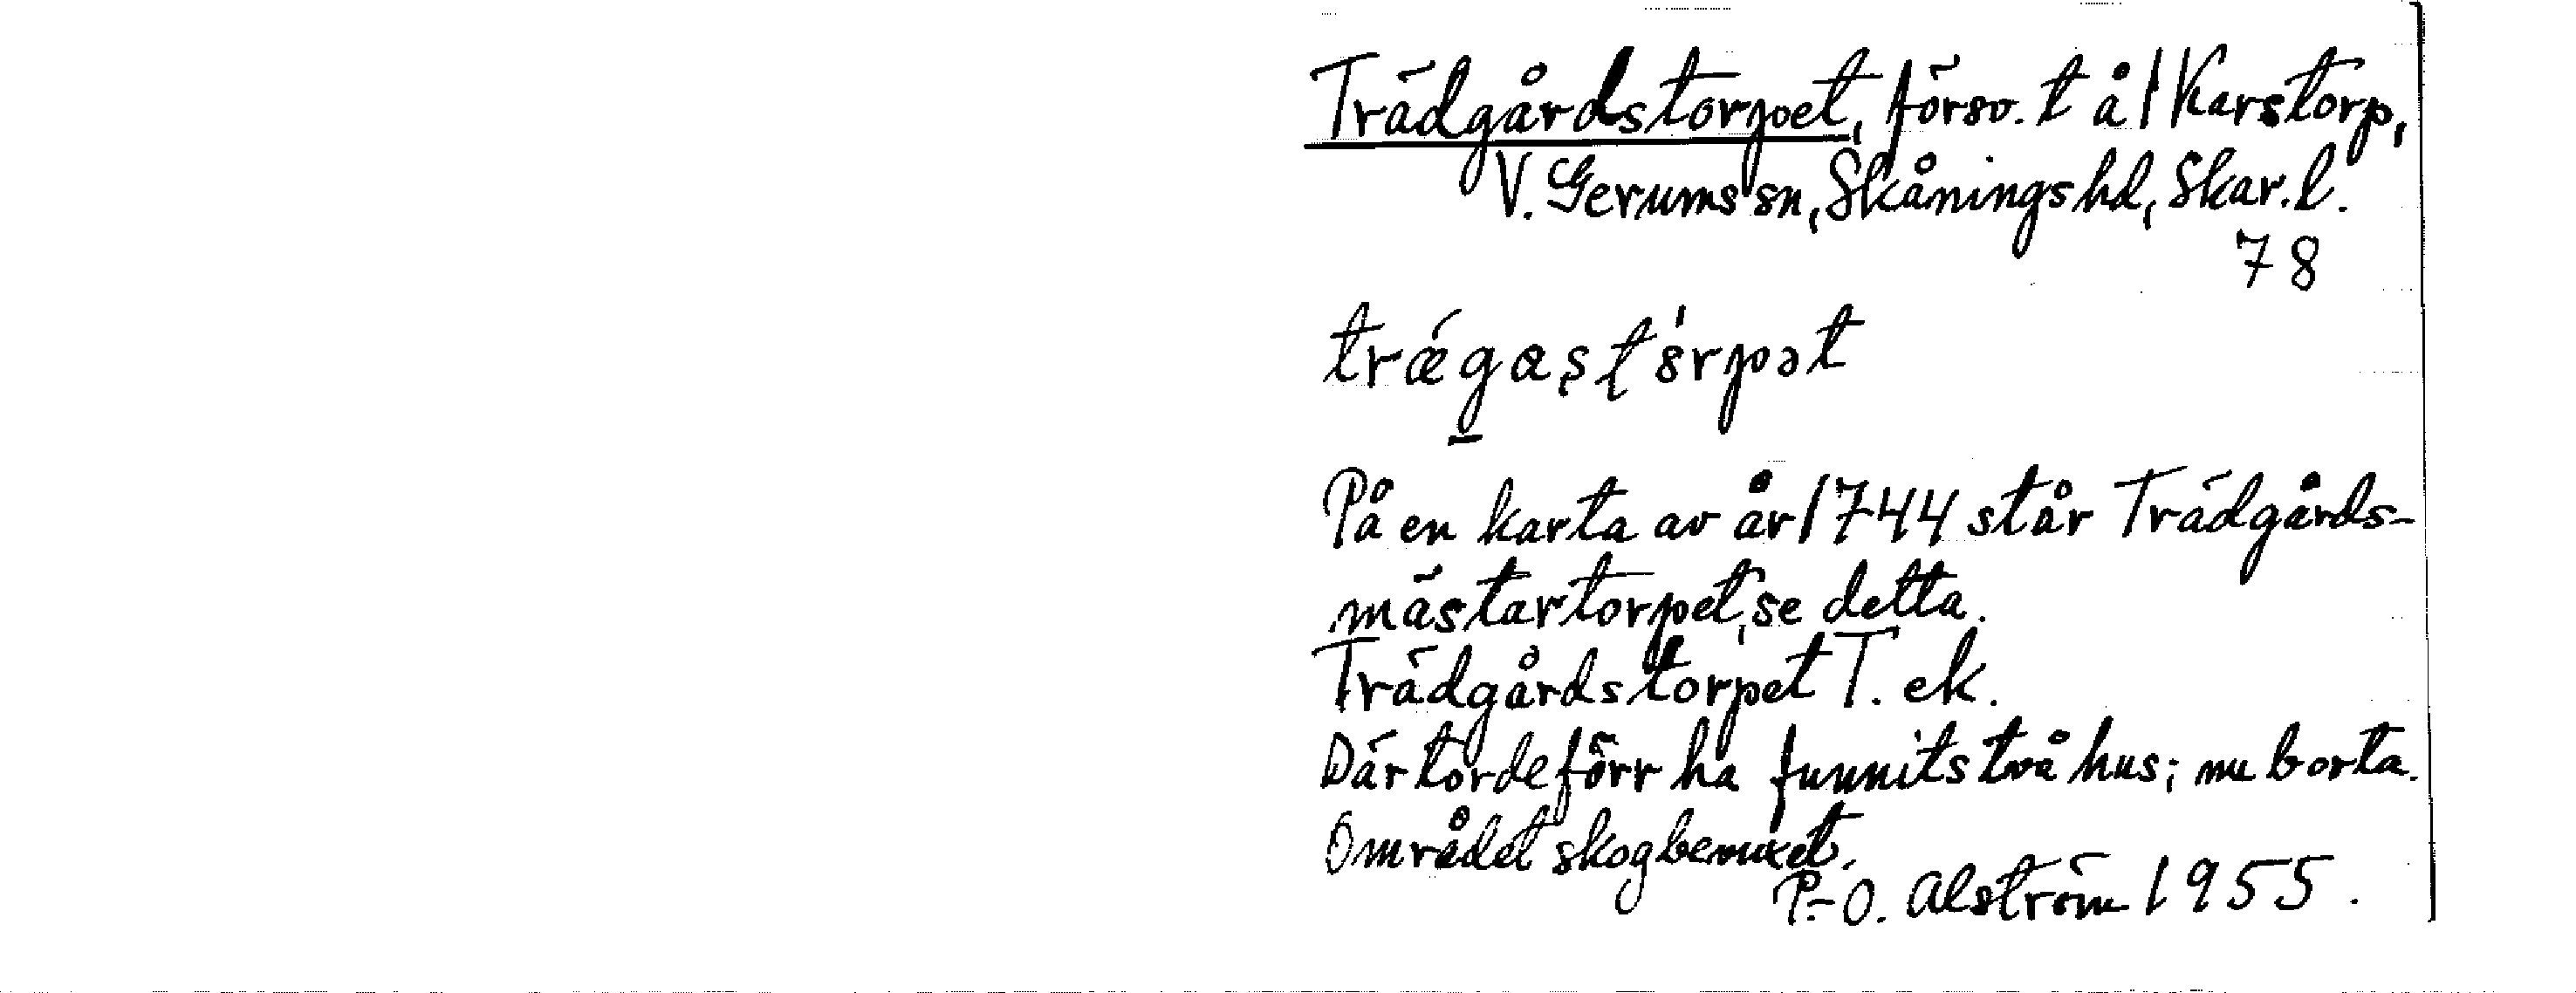 Trädgårdstorpet, försv. t å 1 Karstorp,
V. Gerums sn, Skånings hd, Skar. l.
78
trǽgaʂʈɵ́rpət
På en karta av år 1744 står Trädgårds-
mästartorpet, se detta.
Trädgårdstorpet T. ek.
Där torde förr ha funnits två hus; nu borta.
Området skogbevuxet.
P.-O. Alström 1955.